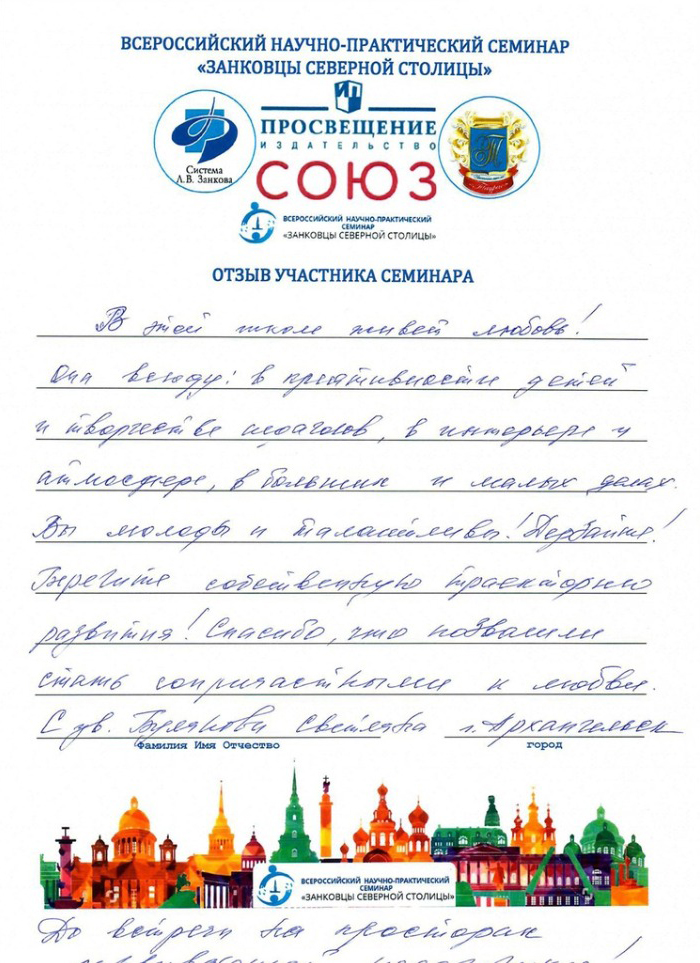 ВСЕРОССИЙСКИЙ НАУЧНО-ПРАКТИЧЕСКИЙ СЕМИНАР
«ЗАНКОВЦЫ СЕВЕРНОЙ СТОЛИЦЫ»
Система
Л.В. Занкова
ПРОСВЕЩЕНИЕ
ИЗДАТЕЛЬСТВО
СОЮЗ
ВСЕРОССИЙСКИЙ НАУЧНО-ПРАКТИЧЕСКИЙ
СЕМИНАР
«ЗАНКОВЦЫ СЕВЕРНОЙ СТОЛИЦЫ»
ОТЗЫВ УЧАСТНИКА СЕМИНАРА
В этой школе живет любовь!
Она всюду: в креативности детей
и творчестве педагогов, в интерьере и
атмосфере, в больших и малых делах.
Вы молоды и талантливы! Дерзайте!
Берегите собственную траекторию
развития! Спасибо, что позволили
стать сопричастными к любви.
С ув. Светлана г. Архангельск
Фамилия Имя Отчество город
ВСЕРОССИЙСКИЙ НАУЧНО-ПРАКТИЧЕСКИЙ
СЕМИНАР
«ЗАНКОВЦЫ СЕВЕРНОЙ СТОЛИЦЫ»
До встречи на просторах